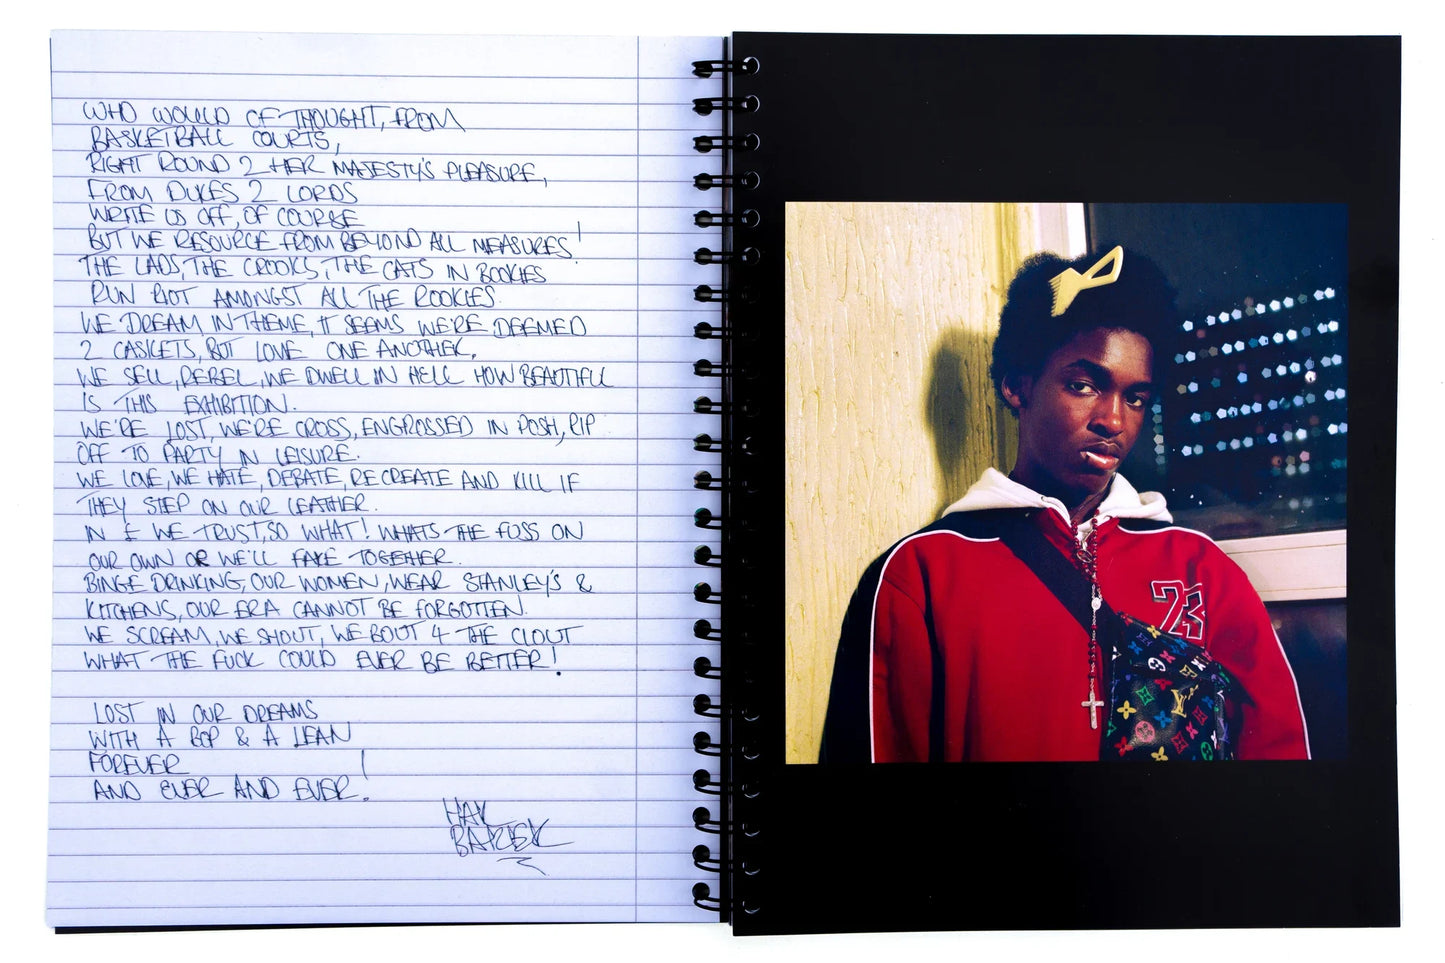 WHO WOULD OF THOUGHT, FROM
BASKETBALL COURTS,
RIGHT ROUND 2 HER MAJESTY'S PLEASURE,
FROM DUKES 2 LORDS
WRITE US OFF, OF COURSE
BUT WE RESOURCE FROM BEYOND ALL MEASURES!
THE LADS, THE CROOKS, THE CATS IN BOOKIES
RUN RIOT AMONGST ALL THE ROOKIES.
WE DREAM IN THEME, IT SEEMS WE'RE DEEMED
2 CASKETS, BUT LOVE ONE ANOTHER.
WE SELL, REBEL, WE DWELL IN HELL HOW BEAUTIFUL
IS THIS EXHIBITION.
WE'RE LOST, WE'RE CROSS, ENGROSSED IN POSH, RIP
OFF TO PARTY IN LEISURE.
WE LOVE, WE HATE, DEBATE, RECREATE AND KILL IF
THEY STEP ON OUR LEATHER.
IN £ WE TRUST, SO WHAT! WHATS THE FUSS ON
OUR OWN OR WE'LL FAKE TOGETHER.
BINGE DRINKING, OUR WOMEN, WEAR STANLEY'S &
KITCHENS, OUR ERA CANNOT BE FORGOTTEN.
WE SCREAM, WE SHOUT, WE BOUT 4 THE CLOUT
WHAT THE FUCK COULD EVER BE BETTER!
LOST IN OUR DREAMS
WITH A BOP & A LEAN
FOREVER
AND EVER AND EVER!
HAK
BAKER
23